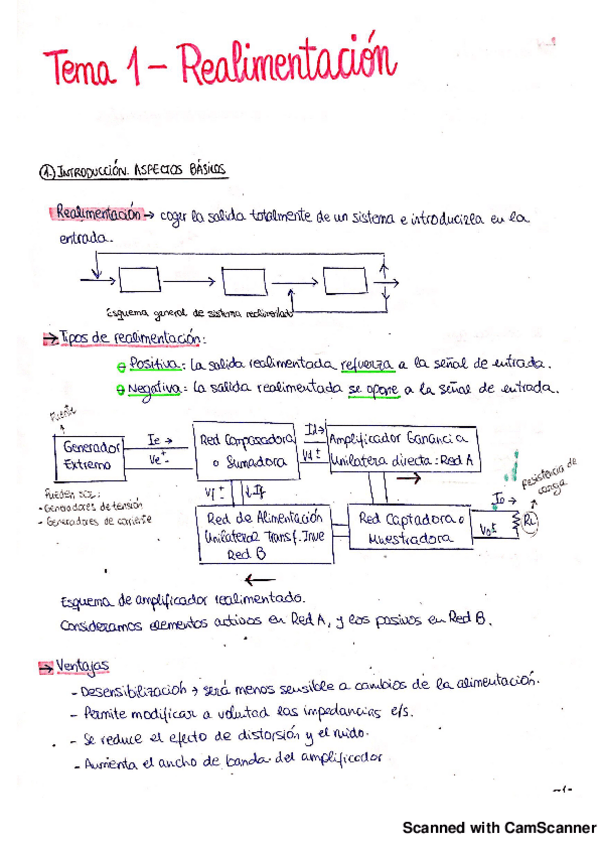 Tema 1 - Realimentación
1.) INTRODUCCIÓN. ASPECTOS BÁSICOS
Realimentación → coger la salida totalmente de un sistema e introducirla en la
entrada.
Esquema general de sistema realimentado
→ Tipos de realimentación:
Positiva: La salida realimentada refuerza a la señal de entrada.
Negativa: La salida realimentada se opone a la señal de entrada.
Fuente
Generador
Extremo
Ie →
Ve
Red Comparadora
o Sumadora
Id →
Vd ±
Amplificador Ganancia
Unilatera directa: Red A
Pueden ser:
- Generadores de tensión
- Generadores de corriente
Vf
↓If
Red de Alimentación
Unilateral Transf. Inve
Red B
Red Captadora o
Muestradora
Io →
Vo ±
RL
resistencia de
carga
Esquema de amplificador realimentado.
Consideramos elementos activos en Red A, y los pasivos en Red B.
→ Ventajas
- Desensibilización → será menos sensible a cambios de la alimentación.
- Permite modificar a voluntad las impedancias e/s.
- Se reduce el efecto de distorsión y el ruido.
- Aumenta el ancho de banda del amplificador
-1-
Scanned with CamScanner